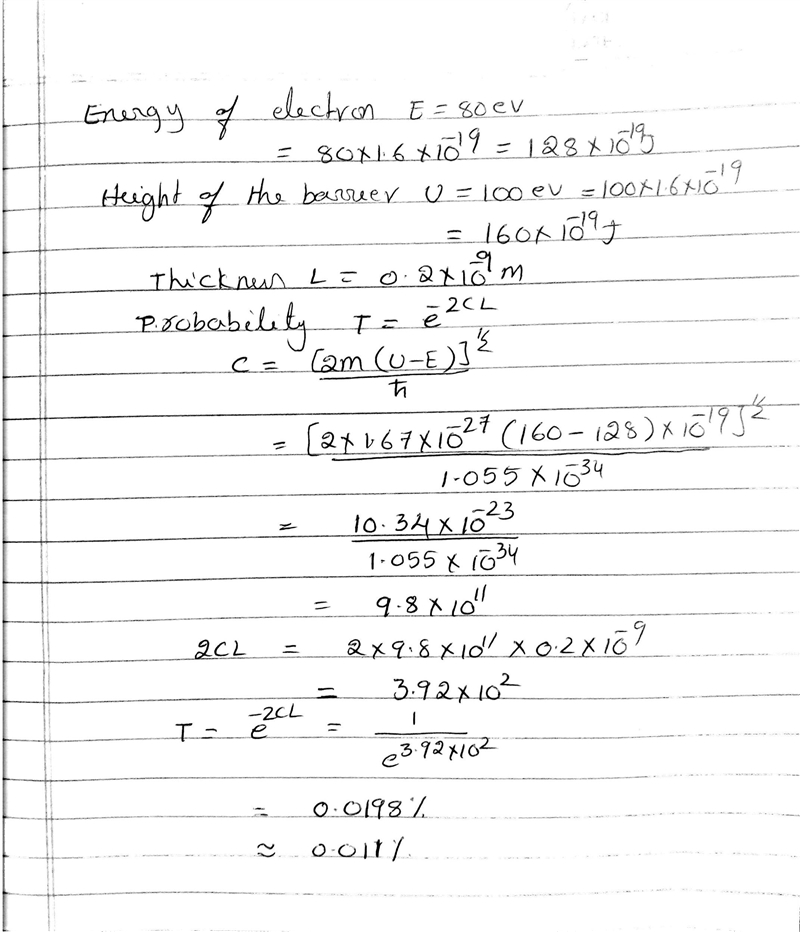 Energy of electron E = 80 eV
= 80×1.6×10⁻¹⁹ = 128×10⁻¹⁹J
Height of the barrier U = 100 eV = 100×1.6×10⁻¹⁹
= 160×10⁻¹⁹J
Thickness L = 0.2×10⁻⁹m
Probability T = e⁻²ᶜᴸ
C = [2m(U-E)]^½ / ħ
= [2×1.67×10⁻²⁷(160-128)×10⁻¹⁹]^½
1.055×10⁻³⁴
= 10.34×10⁻²³
1.055×10⁻³⁴
= 9.8×10¹¹
2CL = 2×9.8×10¹¹×0.2×10⁻⁹
= 3.92×10²
T = e^-2CL = 1 / e^3.92×10²
= 0.0198%
≈ 0.011%